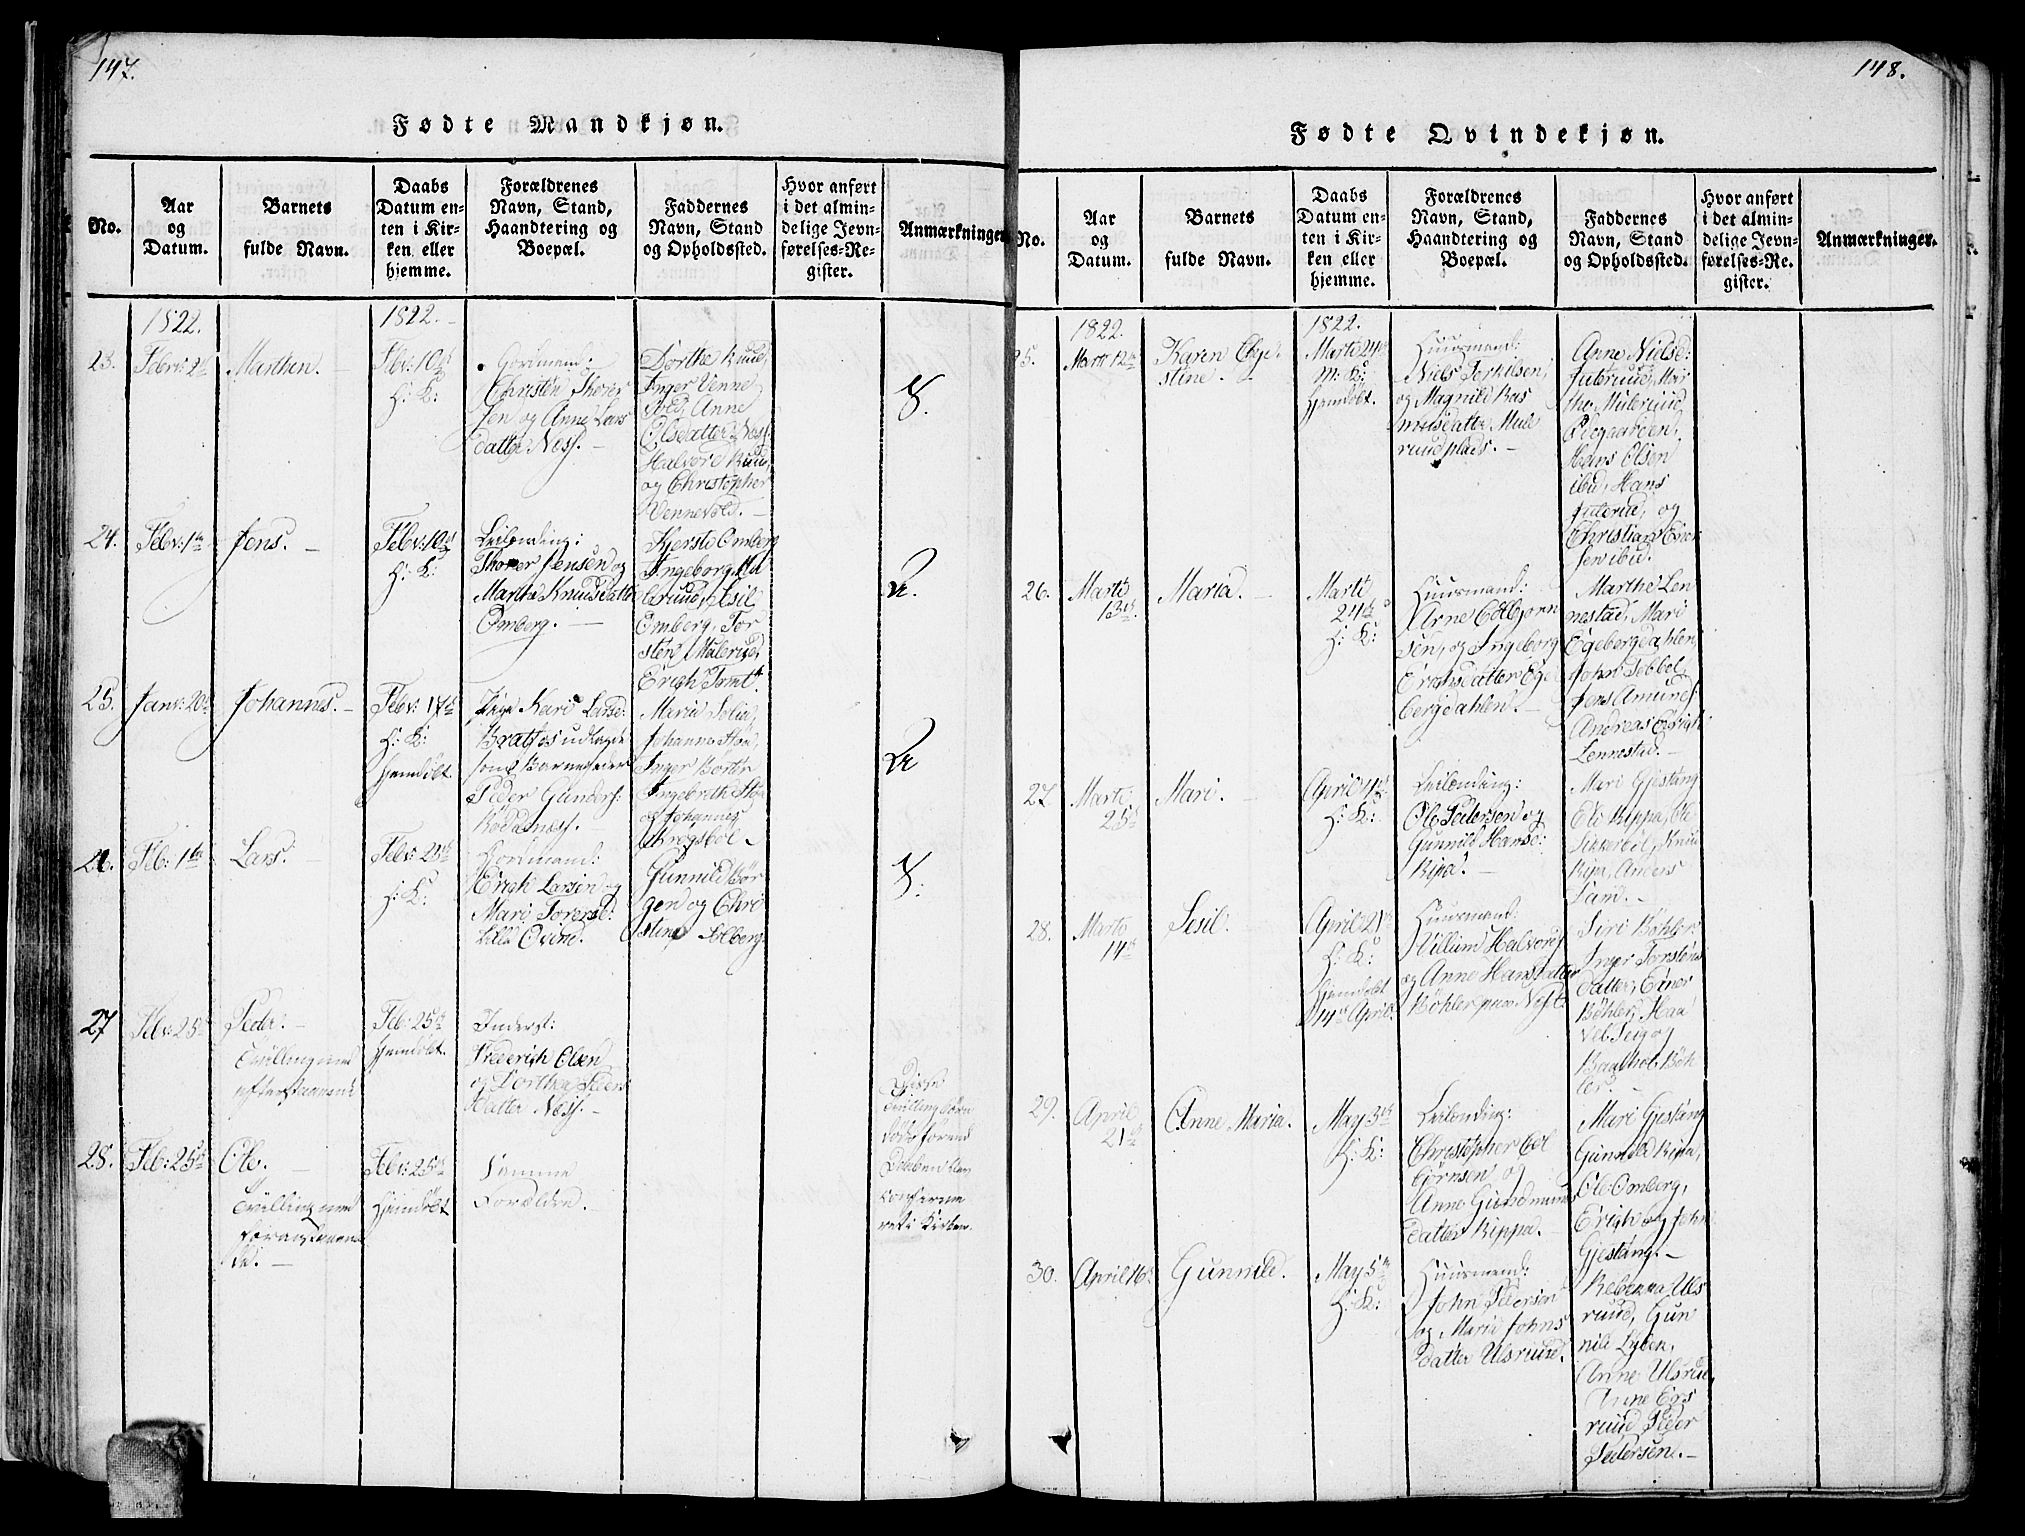 147.
Fødte Mandkjøn.
No.
Aar
og
Datum.
Barnets
fulde Navn.
Daabs
Datum en-
ten i Kir-
ken eller
hjemme.
Forældrenes
Navn, Stand,
Haandtering og
Boepæl.
Faddernes
Navn, Stand
og Opholdssted.
Hvor anført
i det almin-
delige Jevn-
førelses-Re-
gister.
Anmærkninger
1822.
1822.
23.
Febr: 2
Marthen.
Febr: 10
H: K:
Gordmand:
Christen Thorer
sen og Anne Lars
datter Ness.
Dorthe Ruud,
Inger Venne
vold, Anne
Olsdatter Ness.
Halvor Ruud,
og Christopher
Vennevold.
24.
Febr: 1
Jens.
Febr: 10
H: K:
Leilending:
Thorer Jensen og
Martha Knudsdatter
Omberg.
Kjersti Omberg
Ingeborg Mu
lerud, Sisil
Omberg, Tor
sten Mulerud,
Erich Tomt.
25.
Janv: 20
Johannes.
Febr: 17
H: K:
hjemdøbt
Pige Kari Larsd:
Bratfos udlagde
som Barnefader
Peder Gunders:
Rodanæss.
Maria Solia,
Johanne
Inger Børten
Ingebreth
og Johannes
Krogsbøl
26.
Feb: 1
Lars.
Febr: 24
H: K:
Gordmand:
Erich Larsen og
Mari Torersd:
Lille Ovind.
Gunnild Bør
gen og Chri
stine Solberg.
27
Febr: 25
Peder.
Tvilling med
efterstaaende
Feb: 25
hjemdøbt.
Inderst:
Frederich Olsen
og Dorthea Peders
datter Ness.
Disse
Tvillingbørn
døde førend
Daaben blev
confirme
ret i Kirken.
28.
Feb: 25
Ole.
Tvilling med
foranstaaen
de.
Febr: 25
hjemdøbt
Samme
Forældre.
148.
Fødte Qvindekjøn.
No.
Aar
og
Datum.
Barnets
fulde Navn.
Daabs
Datum en-
ten i Kir-
ken eller
hjemme.
Forældrenes
Navn, Stand,
Haandtering og
Boepæl.
Faddernes
Navn, Stand
og Opholdssted.
Hvor anført
i det almin-
delige Jevn-
førelses-Re-
gister.
Anmærkninger.
1822.
1822.
25.
Marti 12
Karen Chri
stine.
Marti 24
M: K:
hjemdøbt.
Huusmand:
Niels Terkilsen,
og Magnild Ras
musdatter Mule
ruudplads.
Anne Nielsd:
Juterud, Mar
the Mulerud
Hans Olsen
ibid, Hans
Juterud, og
Christian Erick
sen ibid.
26.
Marti
13
Maria.
Marti
24
H: K:
Huusmand:
Arne Edbjørn
sen, og Ingeborg
datter Ege
bergdahlen.
Marthe Len
nestad, Mari
Egebergdahlen,
John Sebbol
Jens Amund
Andreas Erich
Lennestad.
27
Marti
25
Mari.
April 4
H: K:
Leilending:
Ole Pedersen og
Gunnild Hansd:
Ripa.
Mari Gjestang
Eli Rippa, Ole
Sikkerbøl, Knud
Ripa, Anders
28.
Marti
14
Sesil.
April 21
H: K:
hjemdøbt
14 April.
Huusmand:
Villum Halvors
og Anne Hansdatter
Böhler
Siri Böhler
Inger Torstens
datter, Einer
Böhler, Haa
Böh
ler.
29.
April
21
Anne Maria.
May 3
H: K:
Leilending:
Christopher Col
bjørnsen og
Anne Gundmunds
datter Rippa.
Mari Gjestang
Gunnild Ripa,
Ole Omberg,
Erich og John
Gjestang.
30.
April 16
Gunnild.
May 5
H: K:
Huusmand:
John Pedersen
og Maria Johns
datter Ulsruud.
Rebekka Uls
ruud, Gun
nild Lyben,
Anne Ulsrud,
Anne Ers
ruud Peder
Pedersen.